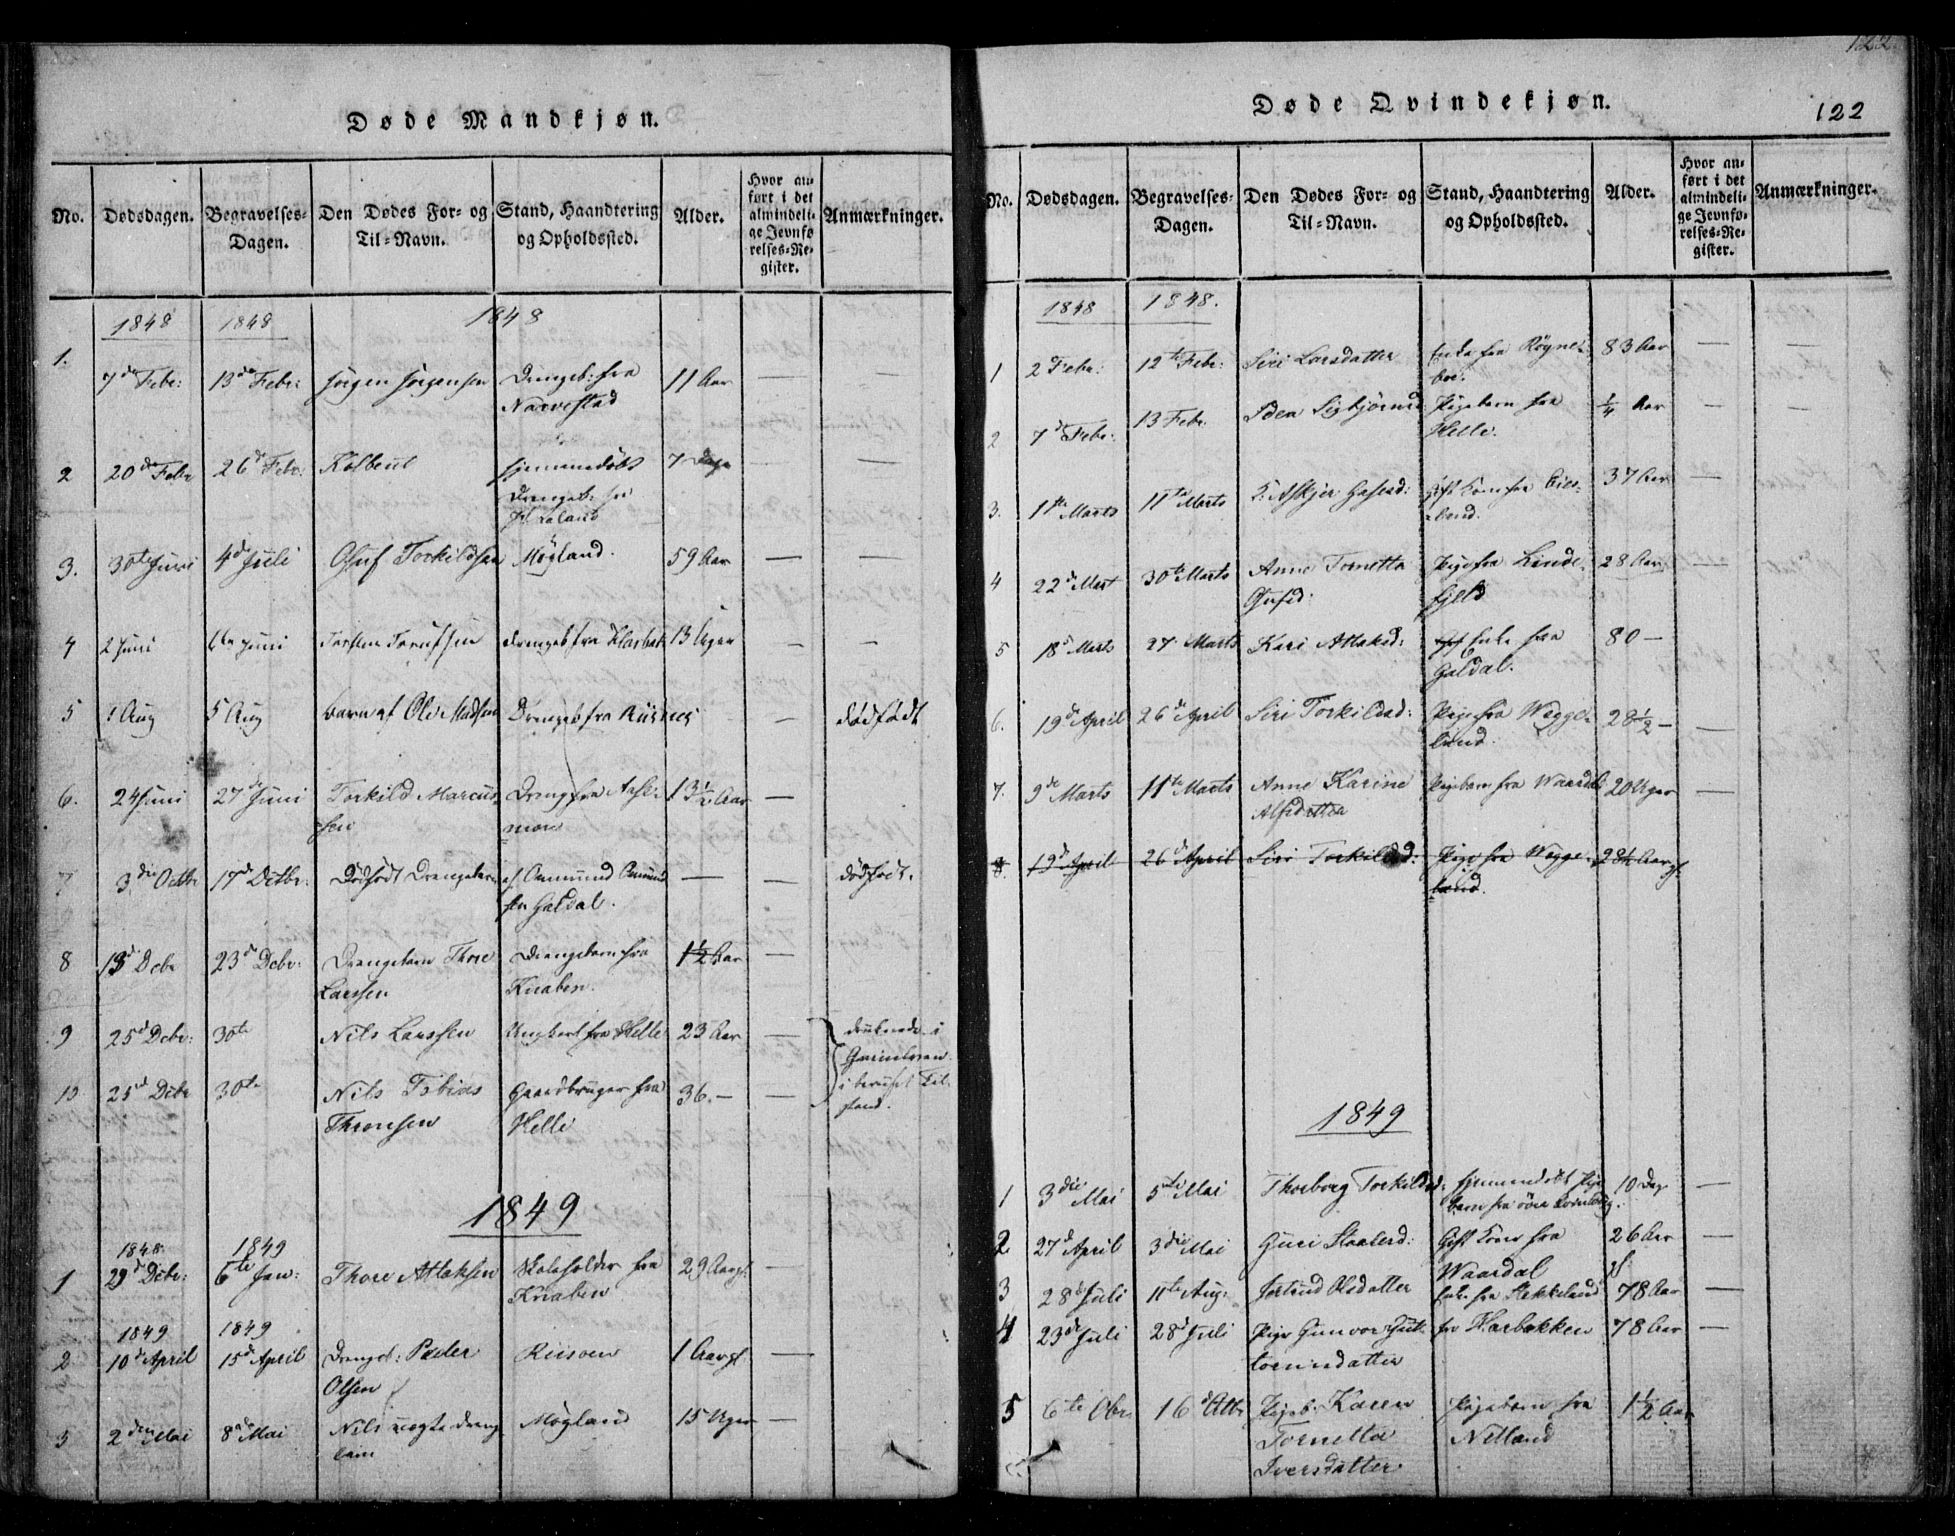 Døde Mandkjøn.
No. Dødsdagen. Begravelses-Dagen. Den Dødes For- og Til-Navn. Stand, Haandtering og Opholdssted. Alder. Hvor anført i det almindelige Jevnførelses-Register. Anmærkninger.
1848 1848 1848
1. 7de Febr: 13de Febr: Jørgen Jørgensen Drengeb: fra 11 Aar — —
Narvestad
2 20de Febr 26de Febr. Kolbeul hjemmedøbt 7 Dage — —
Drengeb: fra
3. 30te Juni 4de Juli Oluf Torkildsen Møgland. 59 Aar — —
4 2 Juni Juni Torsten drengeb fra 13 Uger — —
5 1 Aug 5 Aug barn af Ole Madsen Drengeb fra Risnes — dødfødt
6. 24 Juni 27de Juni Torkild Marcus- Dreng fra Aase- 13½ Aar —
sen moen
7 3die Octbr 17de Octbr. Dødfødt Drengebarn af Osmund Osmund — — dødfødt.
sen Galdal.
8 13de Debr 23de Debr: Drengebarn Thore Drengebarn fra 1½ Aar —
Larssen Knaben.
9 25d Debr: 30te Nils Larssen Ungkarl fra Helle 23 Aar — druknede i
10 25de Debr 30te Nils Tobias Gaardbruger fra 36. — — i beruset Til-
Thronsen Helle stand.
1849
1848 1849
1 29d Debr: 6te Jan: Thore Atlaksen Skoleholder fra 29 Aar gl. —
Knaben
1849 1849
2 10de April 15de April Drengeb: Peder Risoen 1 Aar gl. —
Olsen
3 2den Mai 8de Mai Nils uægte dreng Møgland 15 Uger —
barn
122
Døde Qvindekjøn.
122
No. Dødsdagen. Begravelses-Dagen. Den Dødes For- og Til-Navn. Stand, Haandtering og Opholdssted. Alder. Hvor anført i det almindelige Jevnførelses-Register. Anmærkninger.
1848 1848.
1 2 Febr: 12te Febr: Siri Larsdatter Enke fra Røyne- 83 Aar — —
boe.
2 7d Febr: 13 Febr. Pigebarn fra ¼ Aar — —
Helle.
3. 1ste Marts 11te Marts Gift Kone fra Eies- 37 Aar —
land.
4 22de Mart 30te Marts Anne Tonetta Pige fra Linde- 28 Aar —
Olufsd: fjeld
5 18d Marts 27 Marts Kari Atlaksd: Enke fra 80 —
Galdal.
6. 19de April 26de April Siri Torkildsd: Pige fra Wegge- 28½ — —
land.
7. 9de Marts 11te Marts Anne Karine Pigebarn fra Waardal 20 Uger —
8. 19d April 26d April Siri Torkildsd: Pige fra Wegge- 28½ Aar gl.
land.
1849
1 3die Mai 5te Mai Thorborg Torkildsd: hjemmedøbt Pige 10 Dag —
barn fra øvre
2 27de April 3die Mai Guri Staalesd: Gift Kone fra 26 Aar
Waardal gl
3 28de Juli 11te Aug: Jertrud Olsdatter Enke fra Stakkeland 78 Aar —
4 23de Juli 28de Juli Pige Gunvor Gut- fra Harbakken 78 Aar —
tormsdatter
5 6te Obr. 16de Otbr Pigeb. Karen Pigebarn fra 1½ Aar
Tonetta Netland
Iversdatter